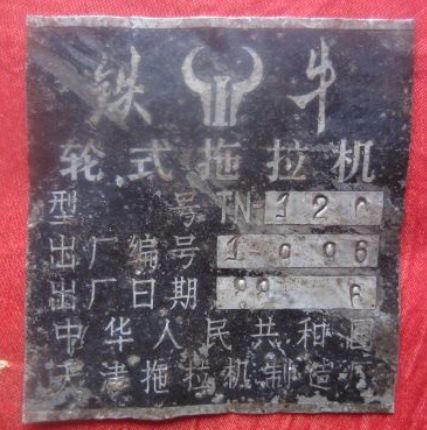 铁牛
轮式拖拉机
型号 TN-120
出厂编号 1-0096
出厂日期 6
中华人民共和国
天津拖拉机制造厂